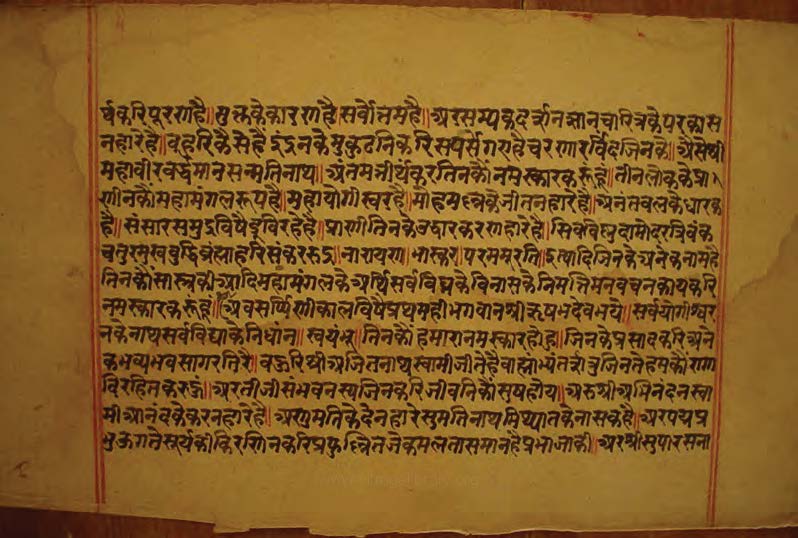 र्थकरिपूरणहै॥ मुक्तकेकारणहै॥ सर्वोत्तमहै॥ अरसम्यकदर्शनज्ञानचारित्रकेपरकास
नहारेहै॥ वहरिकैसेहै इंद्रनकेमुकुटनिकरिसपर्सेगएहैचरणारविंदजिनके॥ अैसेश्री
महावीरवर्द्धमानसन्मतिनाथ॥ अंतमतीर्थकरतिनकौंनमस्कारकरूहूं॥ तीनलोककेप्रा
णीनकौंमहामंगलरूपहै॥ महायोगीस्वरहै॥ मोहमल्लकेजीतनहारेहै॥ अनंतवलकेधारक
है॥ संसारसमुद्रविषैडूविरहेहै॥ प्राणीतिनकेउद्धारकरणहारेहै॥ सिवविस्नुदामोदरत्रिवंक
चतुरमुखबुद्धिब्रंह्माहरिसंकररुद्र॥ नारायण॥ भास्कर॥ परममूरति॥ इत्यादिजिनकेअनेकनामहै
तिनकौंसास्त्रकीआदिमहामंगलकेअर्थिसर्वविघ्नकेविनासकेनिमतिमनवचनकायकरि
नमस्कारकरूहूं॥ अवसर्प्पिणीकालविषैप्रथमहीभगवानश्रीऋषभदेवभये॥ सर्वयोगीश्वर
नकेनाथसर्वविद्याकेनिधांन॥ स्वयंभू॥ तिनकौंहमारानमस्कारहोहु॥ जिनकेप्रसादकरिअने
कभव्यभवसागरतिरै॥ वऊरिश्रीअजितनाथस्वामीजीतेहैवाह्याभ्यंतरशत्रुजिनतेहमकौंरागा
विरहितकरऊ॥ अरतीजीसंभवनाथजिनकरिजीवनिकौंसुषहोय॥ अरुश्रीअभिनंदनस्वा
मीआनंदकेकरनहारेहै॥ अरसुमतिकेदेनहारेसुमतिनाथमिथ्यातकेनासकहै॥ अरपद्मप्र
भुऊगतेसूर्यकीकिरणिनकरिप्रफुल्लितजेकमलतासमानहैप्रभाजाकी॥ अरश्रीसुपारसना